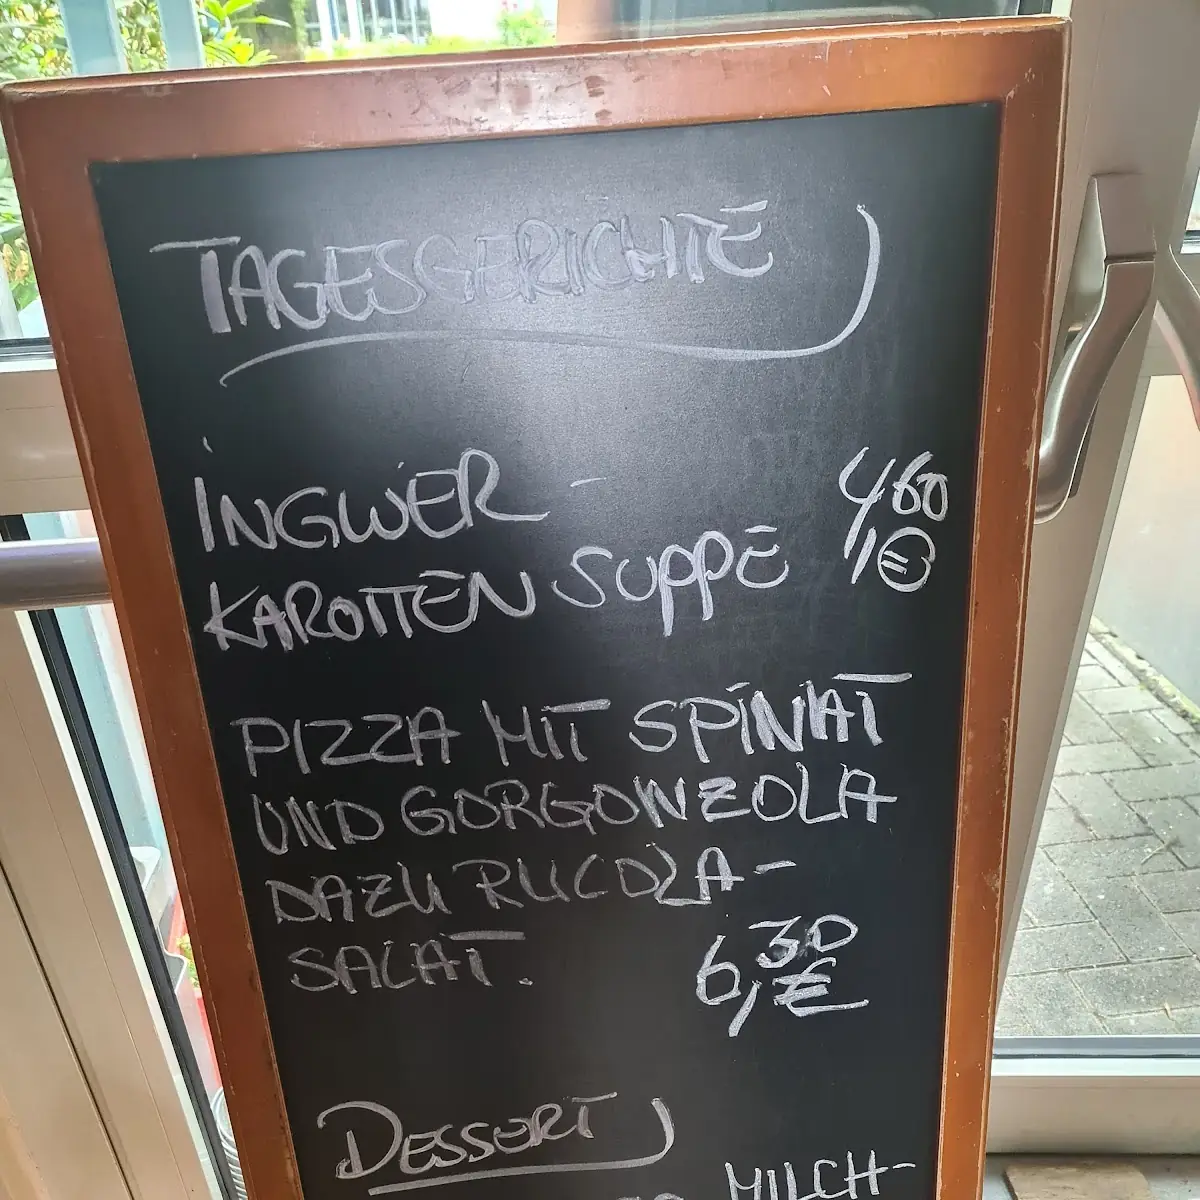 TAGESGERICHTE
INGWER - 4,60
KAROTTEN SUPPE €
PIZZA MIT SPINAT
UND GORGONZOLA
DAZU RUCOLA-
SALAT. 6,30 €
DESSERT
MILCH-